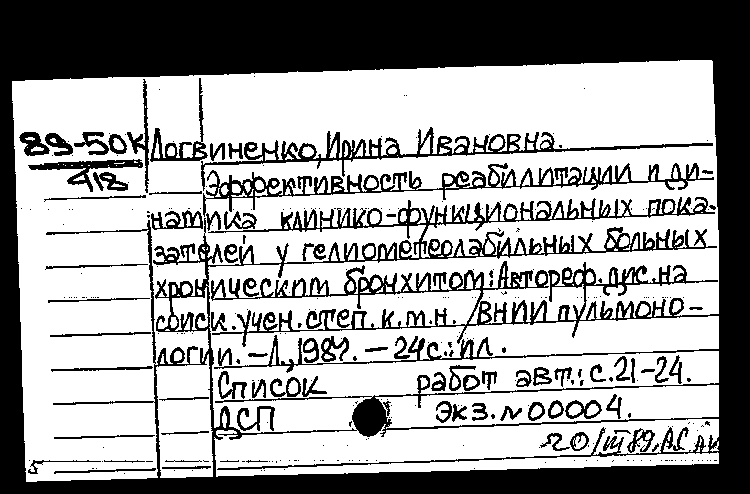 89-50К Логвиненко, Ирина Ивановна.
418 Эффективность реабилитации и ди-
натика клинико-функциональных пока-
зателей у гелиометеолабильных больных
хроническим бронхитом: Автореф. дис. на
соиск. учен. степ. к.м.н. / ВНИИ пульмоно-
логии. – Л., 1987. – 24 с.: ил.
Список работ авт.: с. 21-24.
ДСП Экз. № 00004.
20/III 89.
5